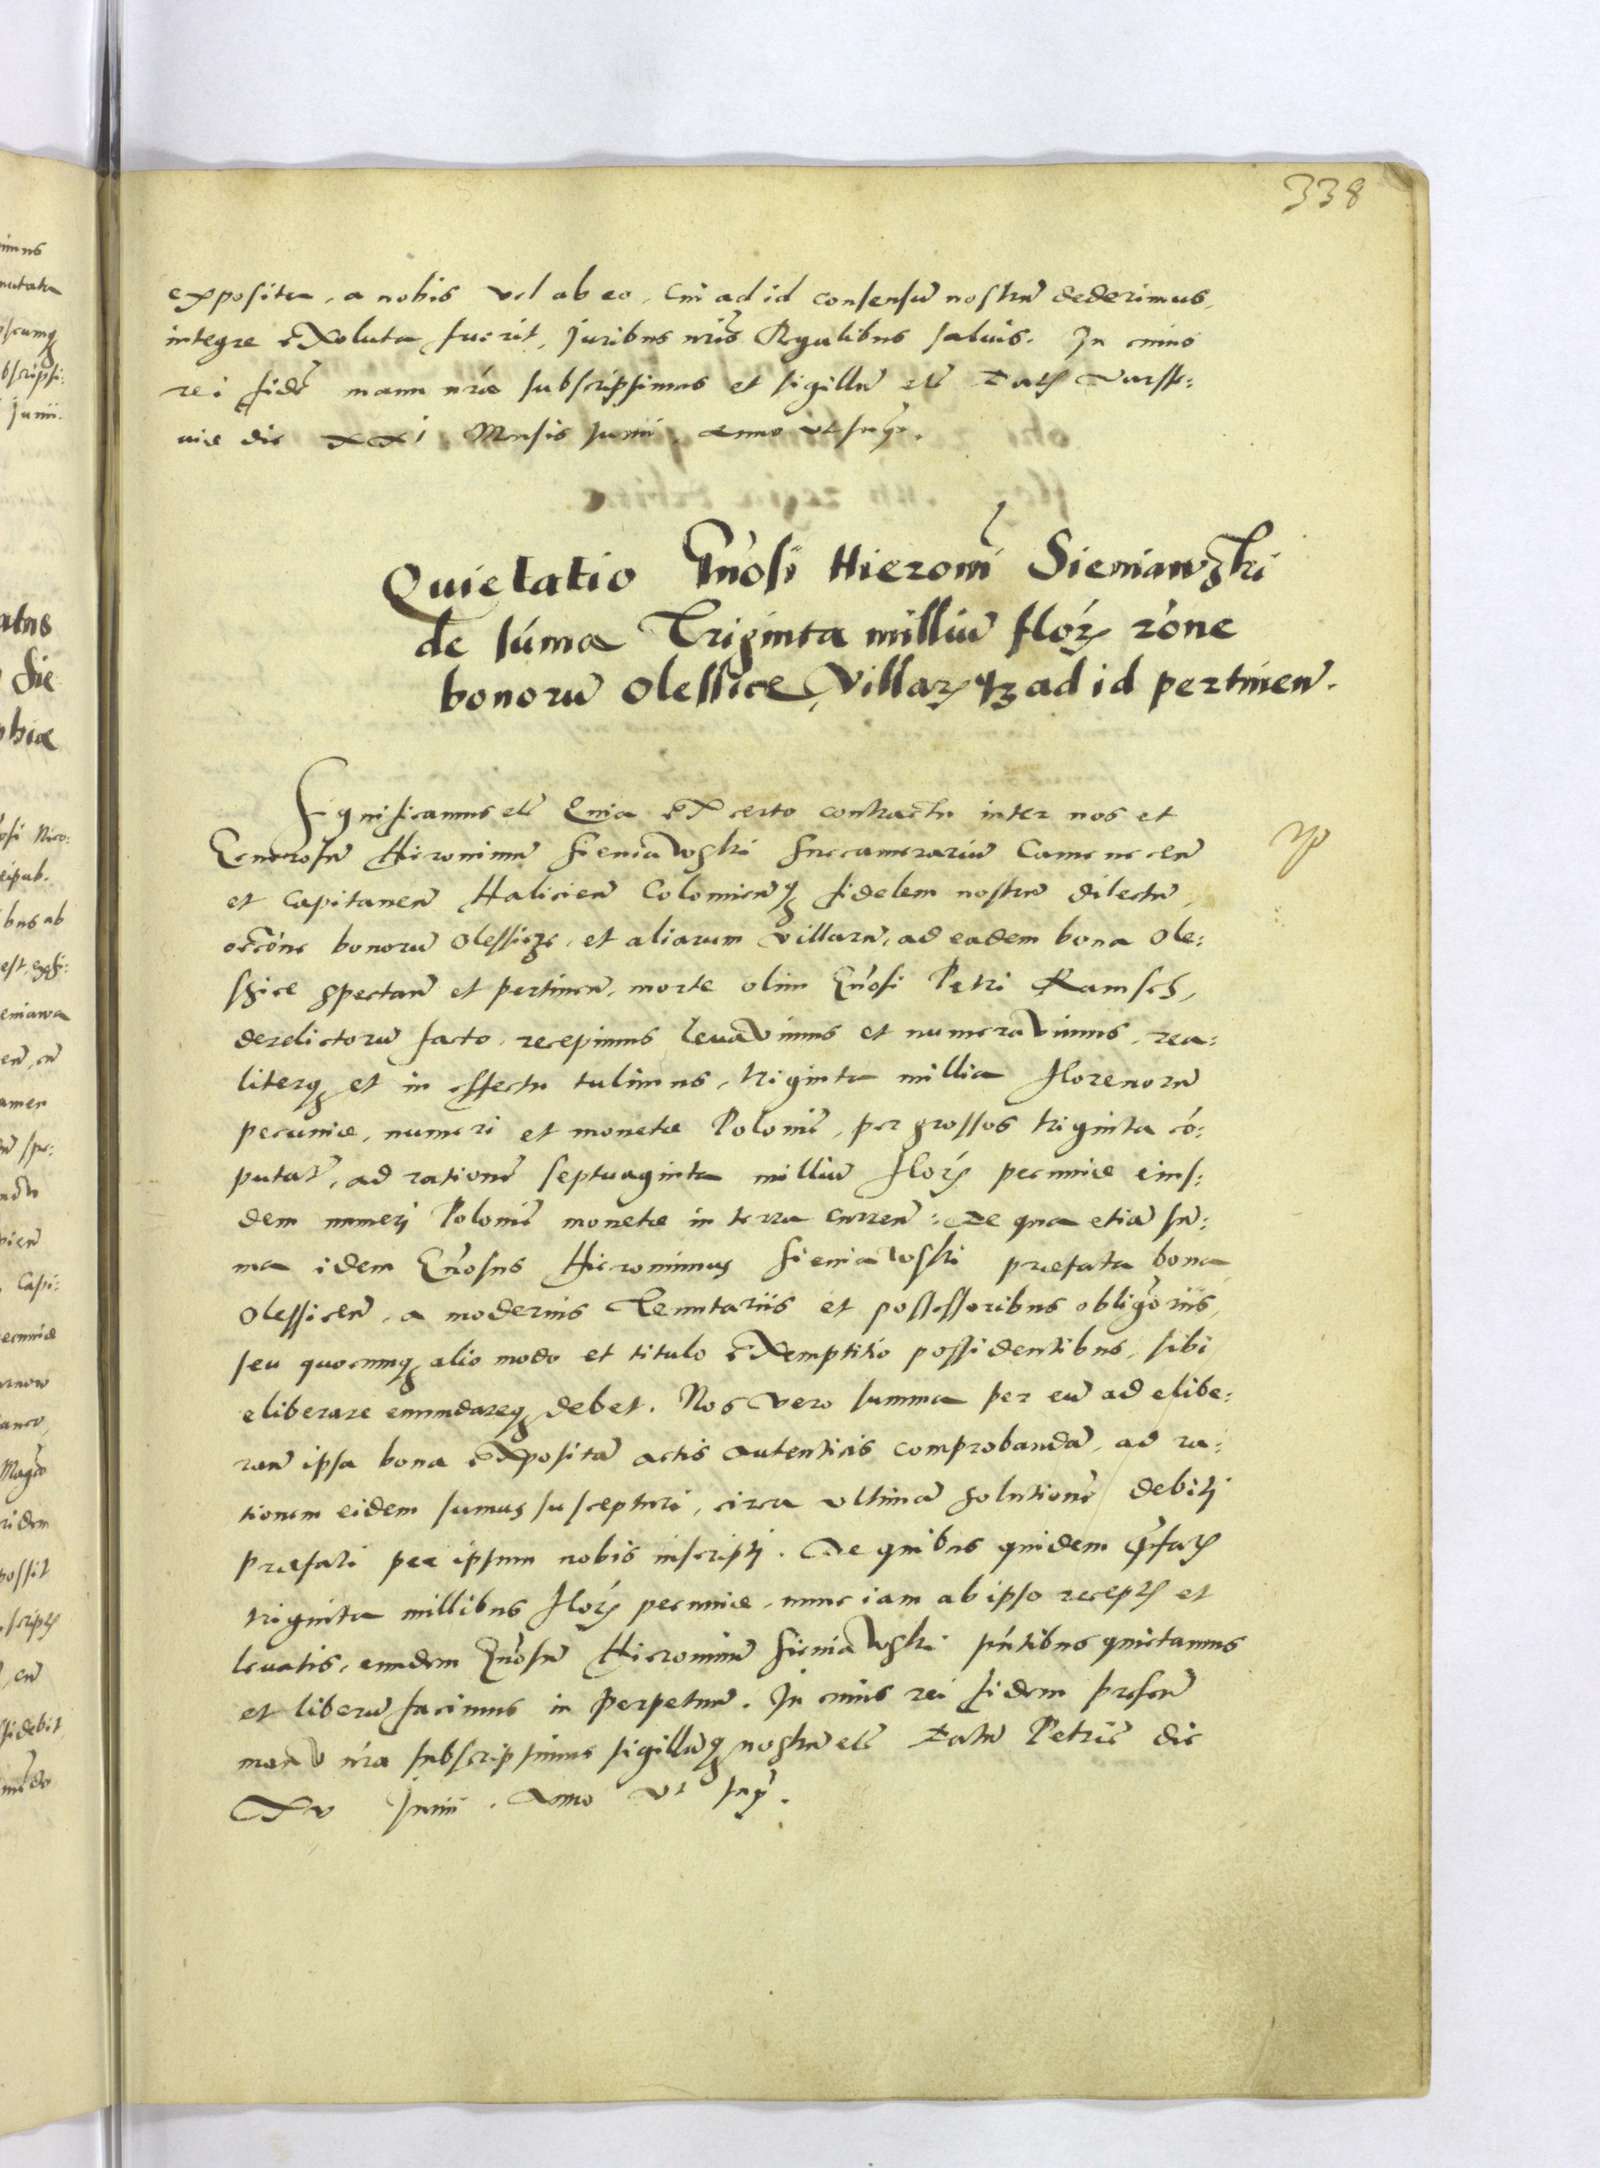 338
exposita, a nobis vel ab eo, cui ad id consensũ nostrũ dederimus,
integre exoluta fuerit, Juribus nr̃is Regalibus salvis. In cuius
rei fidẽ manu nr̃a subscripsimus et sigillũ etc̃ Datꝫ Varsse:
vie die XXI Mensis Junii, anno ut supr̃.
Quietatio Gñosi Hieronĩ Sieniawski
de sũma Triginta milliũ florꝫ rõne
bonorũ Olessice, Villarꝫqꝫ ad id pertineñ.
Significamus etc̃ Quia ex certo contractu inter nos et
Generosũ Hieronimũ Sieniawski Succamerariũ Cameneceñ
et Capitaneũ Halicieñ Colomieñqꝫ fidelem nostrũ dilectũ,
occõne bonorũ Olessicze, et aliarum villarũ, ad eadem bona Ole:
szice spectañ et pertineñ, morte olim Gñosi Petri Ramsch,
derelictorũ facto, recepimus levavimus et numeravimus, rea:
literqꝫ et in effectu tulimus, triginta millia florenorũ
pecuniæ, numeri et monetæ Poloniẽ, per grossos triginta cõ:
putat̃, ad rationẽ septuaginta milliũ florꝫ pecuniæ eius:
dem numeri Poloniẽ monetæ in terra curreñ: De qua etiã sũ:
ma idem Gñosus Hieronimus Sieniawski præfata bona
Olessiceñ, a modernis Tenutariis et possessoribus obligõriis,
seu quocunqꝫ alio modo et titulo exemptitio possidentibus, sibi
eliberare emundareqꝫ debet. Nos vero summa per eũ ad elibe:
rañ ipsa bona expositã actis autenticis comprobandã, ad ra:
tionem eidem sumus suscepturi, circa ultimã solutionẽ debiti
præfati per ipsum nobis inscripti. De quibus quidem p̃fatꝫ
triginta millibus florꝫ pecuniæ, nunc iam ab ipso receptꝫ et
levatis, eundem Gñosũ Hieronimũ Sieniawski pñtibus quietamus
et liberũ facimus in perpetuũ. In cuius rei fidem præseñ
manu nr̃a subscripsimus sigillũqꝫ nostrũ etc̃ Datũ Petricẽ die
XV Junii. Anno ut sup̃.